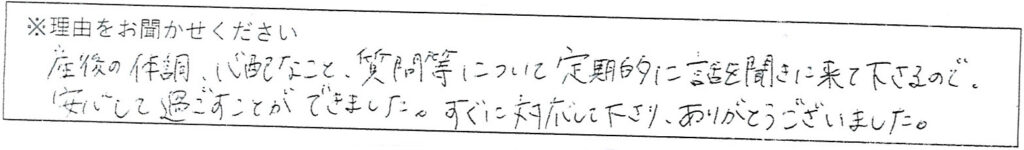 ※理由をお聞かせください
産後の体調、心配なこと、質問等について定期的に話を聞きに来て下さるので、
安心して過ごすことができました。すぐに対応して下さり、ありがとうございました。